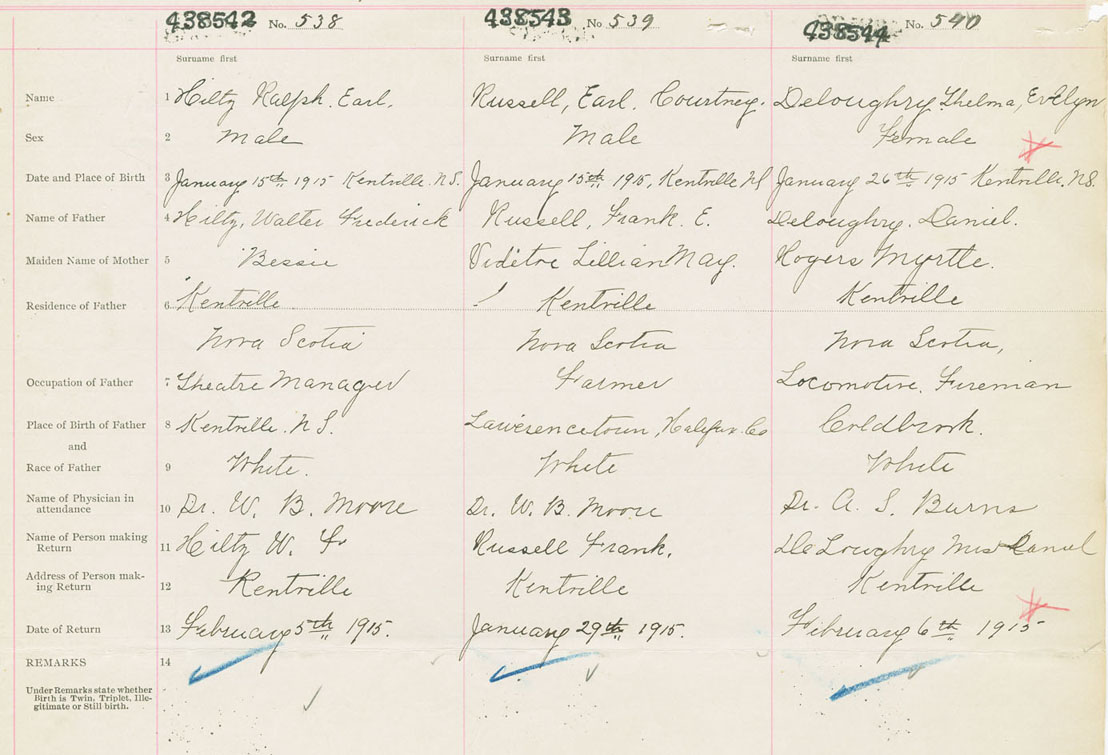 438542 No. 538 438543 No 539 438544 No. 540
Surname first Surname first Surname first
Name 1 Hiltz Ralph. Earl. Russell, Earl. Courtney. Deloughry Thelma, Evelyn
Sex 2 Male Male Female
Date and Place of Birth 3 January 15th 1915 Kentville. N.S. January 15th 1915, Kentville NS January 26th 1915 Kentville. N.S.
Name of Father 4 Hiltz, Walter Frederick Russell, Frank. E. Deloughry. Daniel.
Maiden Name of Mother 5 Bessie Lillian May. Rogers Myrtle.
Residence of Father 6 Kentville Kentville Kentville
Nova Scotia Nova Scotia Nova Scotia,
Occupation of Father 7 Theatre Manager Farmer Locomotive. Fireman
Place of Birth of Father 8 Kentville. N S. Lawrencetown, Halifax. Co Coldbrook.
and
Race of Father 9 White. White White
Name of Physician in
attendance 10 Dr. W. B. Moore Dr. W. B. Moore Dr. A. S. Burns
Name of Person making
Return 11 Hiltz W. Fr Russell Frank. DeLoughry Mrs Daniel
Address of Person mak-
ing Return 12 Kentville Kentville Kentville
Date of Return 13 February 5th 1915. January 29th 1915. February 6th 1915
REMARKS 14
Under Remarks state whether
Birth is Twin, Triplet, Ille-
gitimate or Still birth.